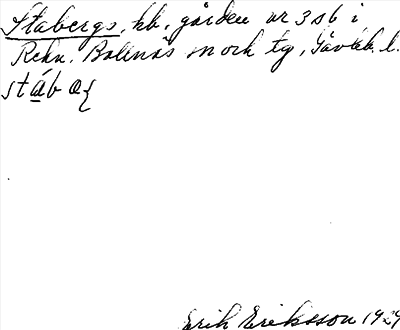 Stabergs, hb, gården nr 3 s6 i
Rehn, Bollnäs sn och tg, Gävleb. l.
Erik Eriksson 1929